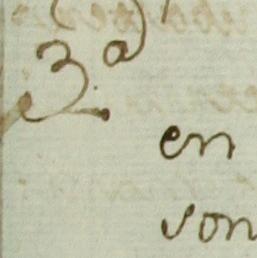 3ª
en
son